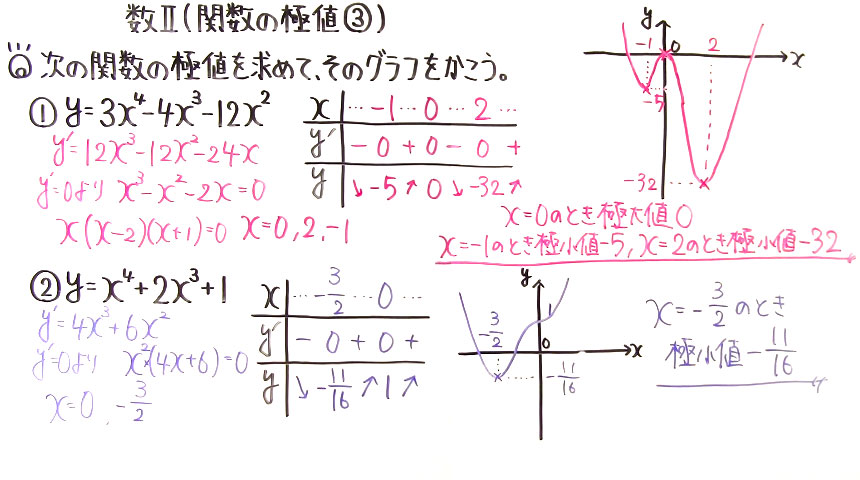 数Ⅱ(関数の極値③)
◎次の関数の極値を求めて、そのグラフをかこう。
① y=3x⁴-4x³-12x²
y'=12x³-12x²-24x
y'=0より x³-x²-2x=0
x(x-2)(x+1)=0 x=0,2,-1
x … -1 … 0 … 2 …
y' - 0 + 0 - 0 +
y ↘ -5 ↗ 0 ↘ -32 ↗
y
-1 0 2
x
-5
-32
x=0のとき極大値0
x=-1のとき極小値-5, x=2のとき極小値-32
② y=x⁴+2x³+1
y'=4x³+6x²
y'=0より x²(4x+6)=0
x=0, -3/2
x … -3/2 … 0 …
y' - 0 + 0 +
y ↘ -11/16 ↗ 1 ↗
y
1
-3/2
0
x
-11/16
x=-3/2のとき
極小値-11/16